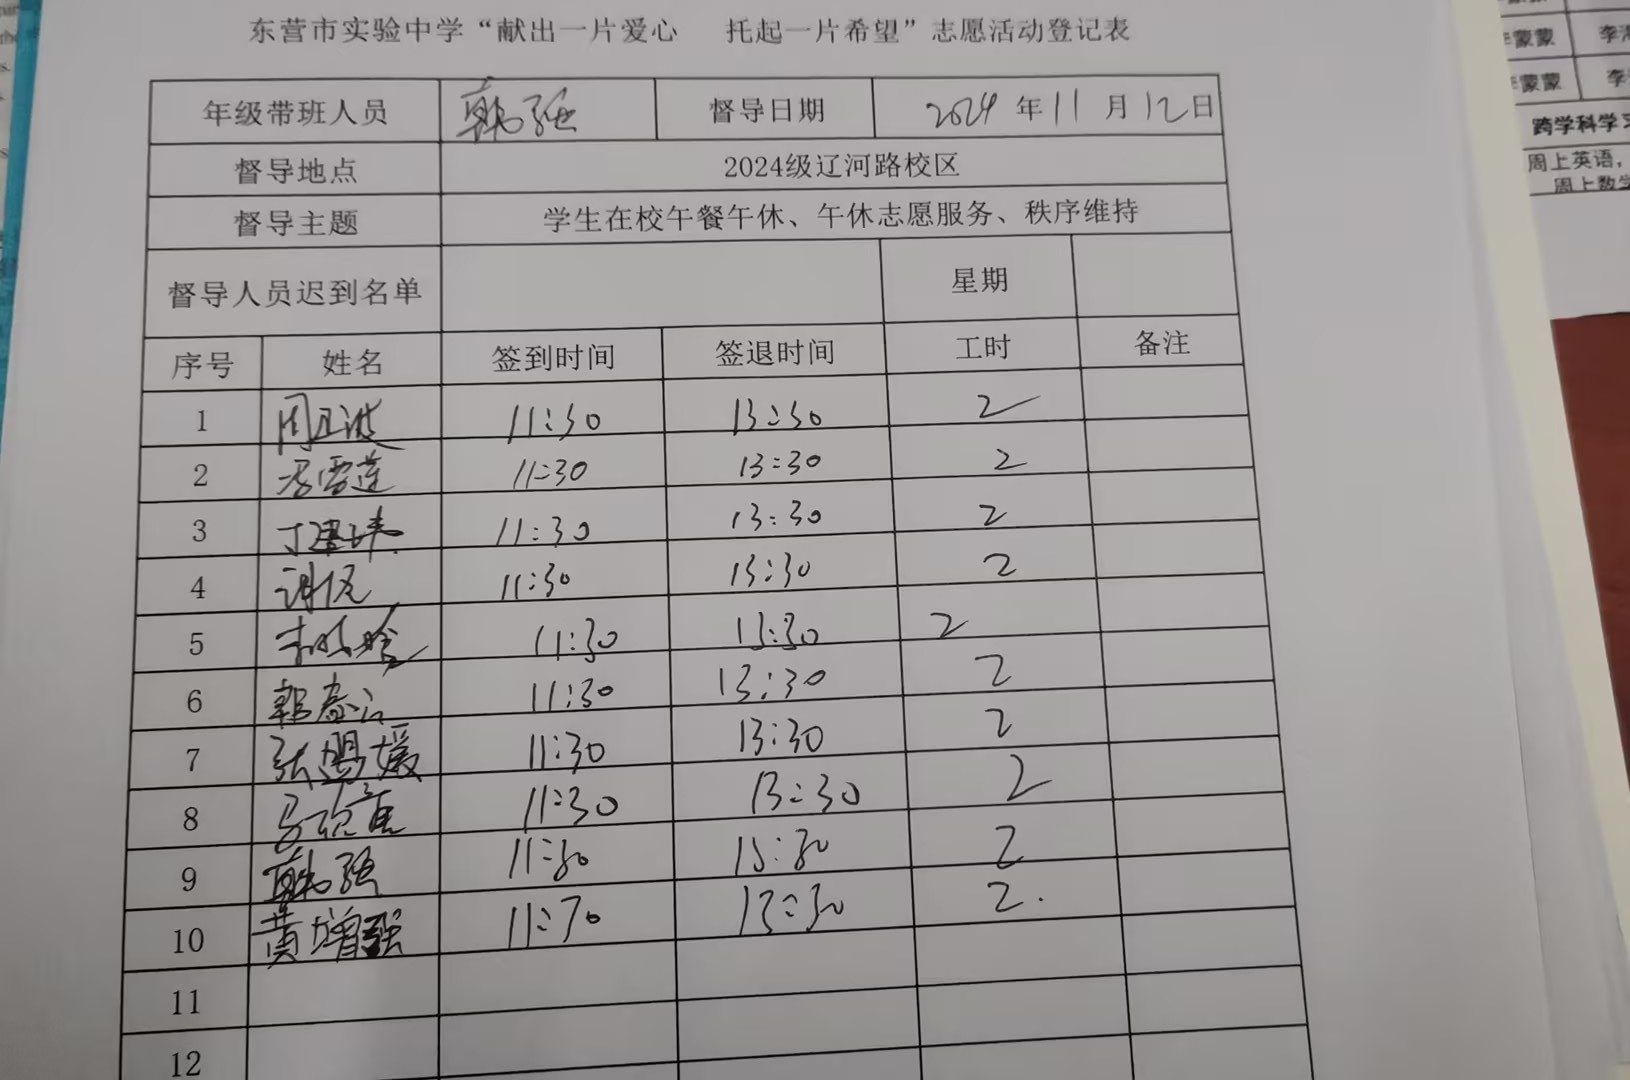 东营市实验中学“献出一片爱心 托起一片希望”志愿活动登记表
年级带班人员 韩强 督导日期 2024年11月12日
督导地点 2024级辽河路校区
督导主题 学生在校午餐午休、午休志愿服务、秩序维持
督导人员迟到名单 星期
序号 姓名 签到时间 签退时间 工时 备注
1 11:30 13:30 2
2 李雪莲 11:30 13:30 2
3 11:30 13:30 2
4 11:30 13:30 2
5 11:30 13:30 2
6 郭春江 11:30 13:30 2
7 张盟媛 11:30 13:30 2
8 11:30 13:30 2
9 韩强 11:30 13:30 2
10 黄增强 11:30 13:30 2.
11
12
蒙蒙 李
蒙蒙 李
跨学科学习
周上英语,
周上数学